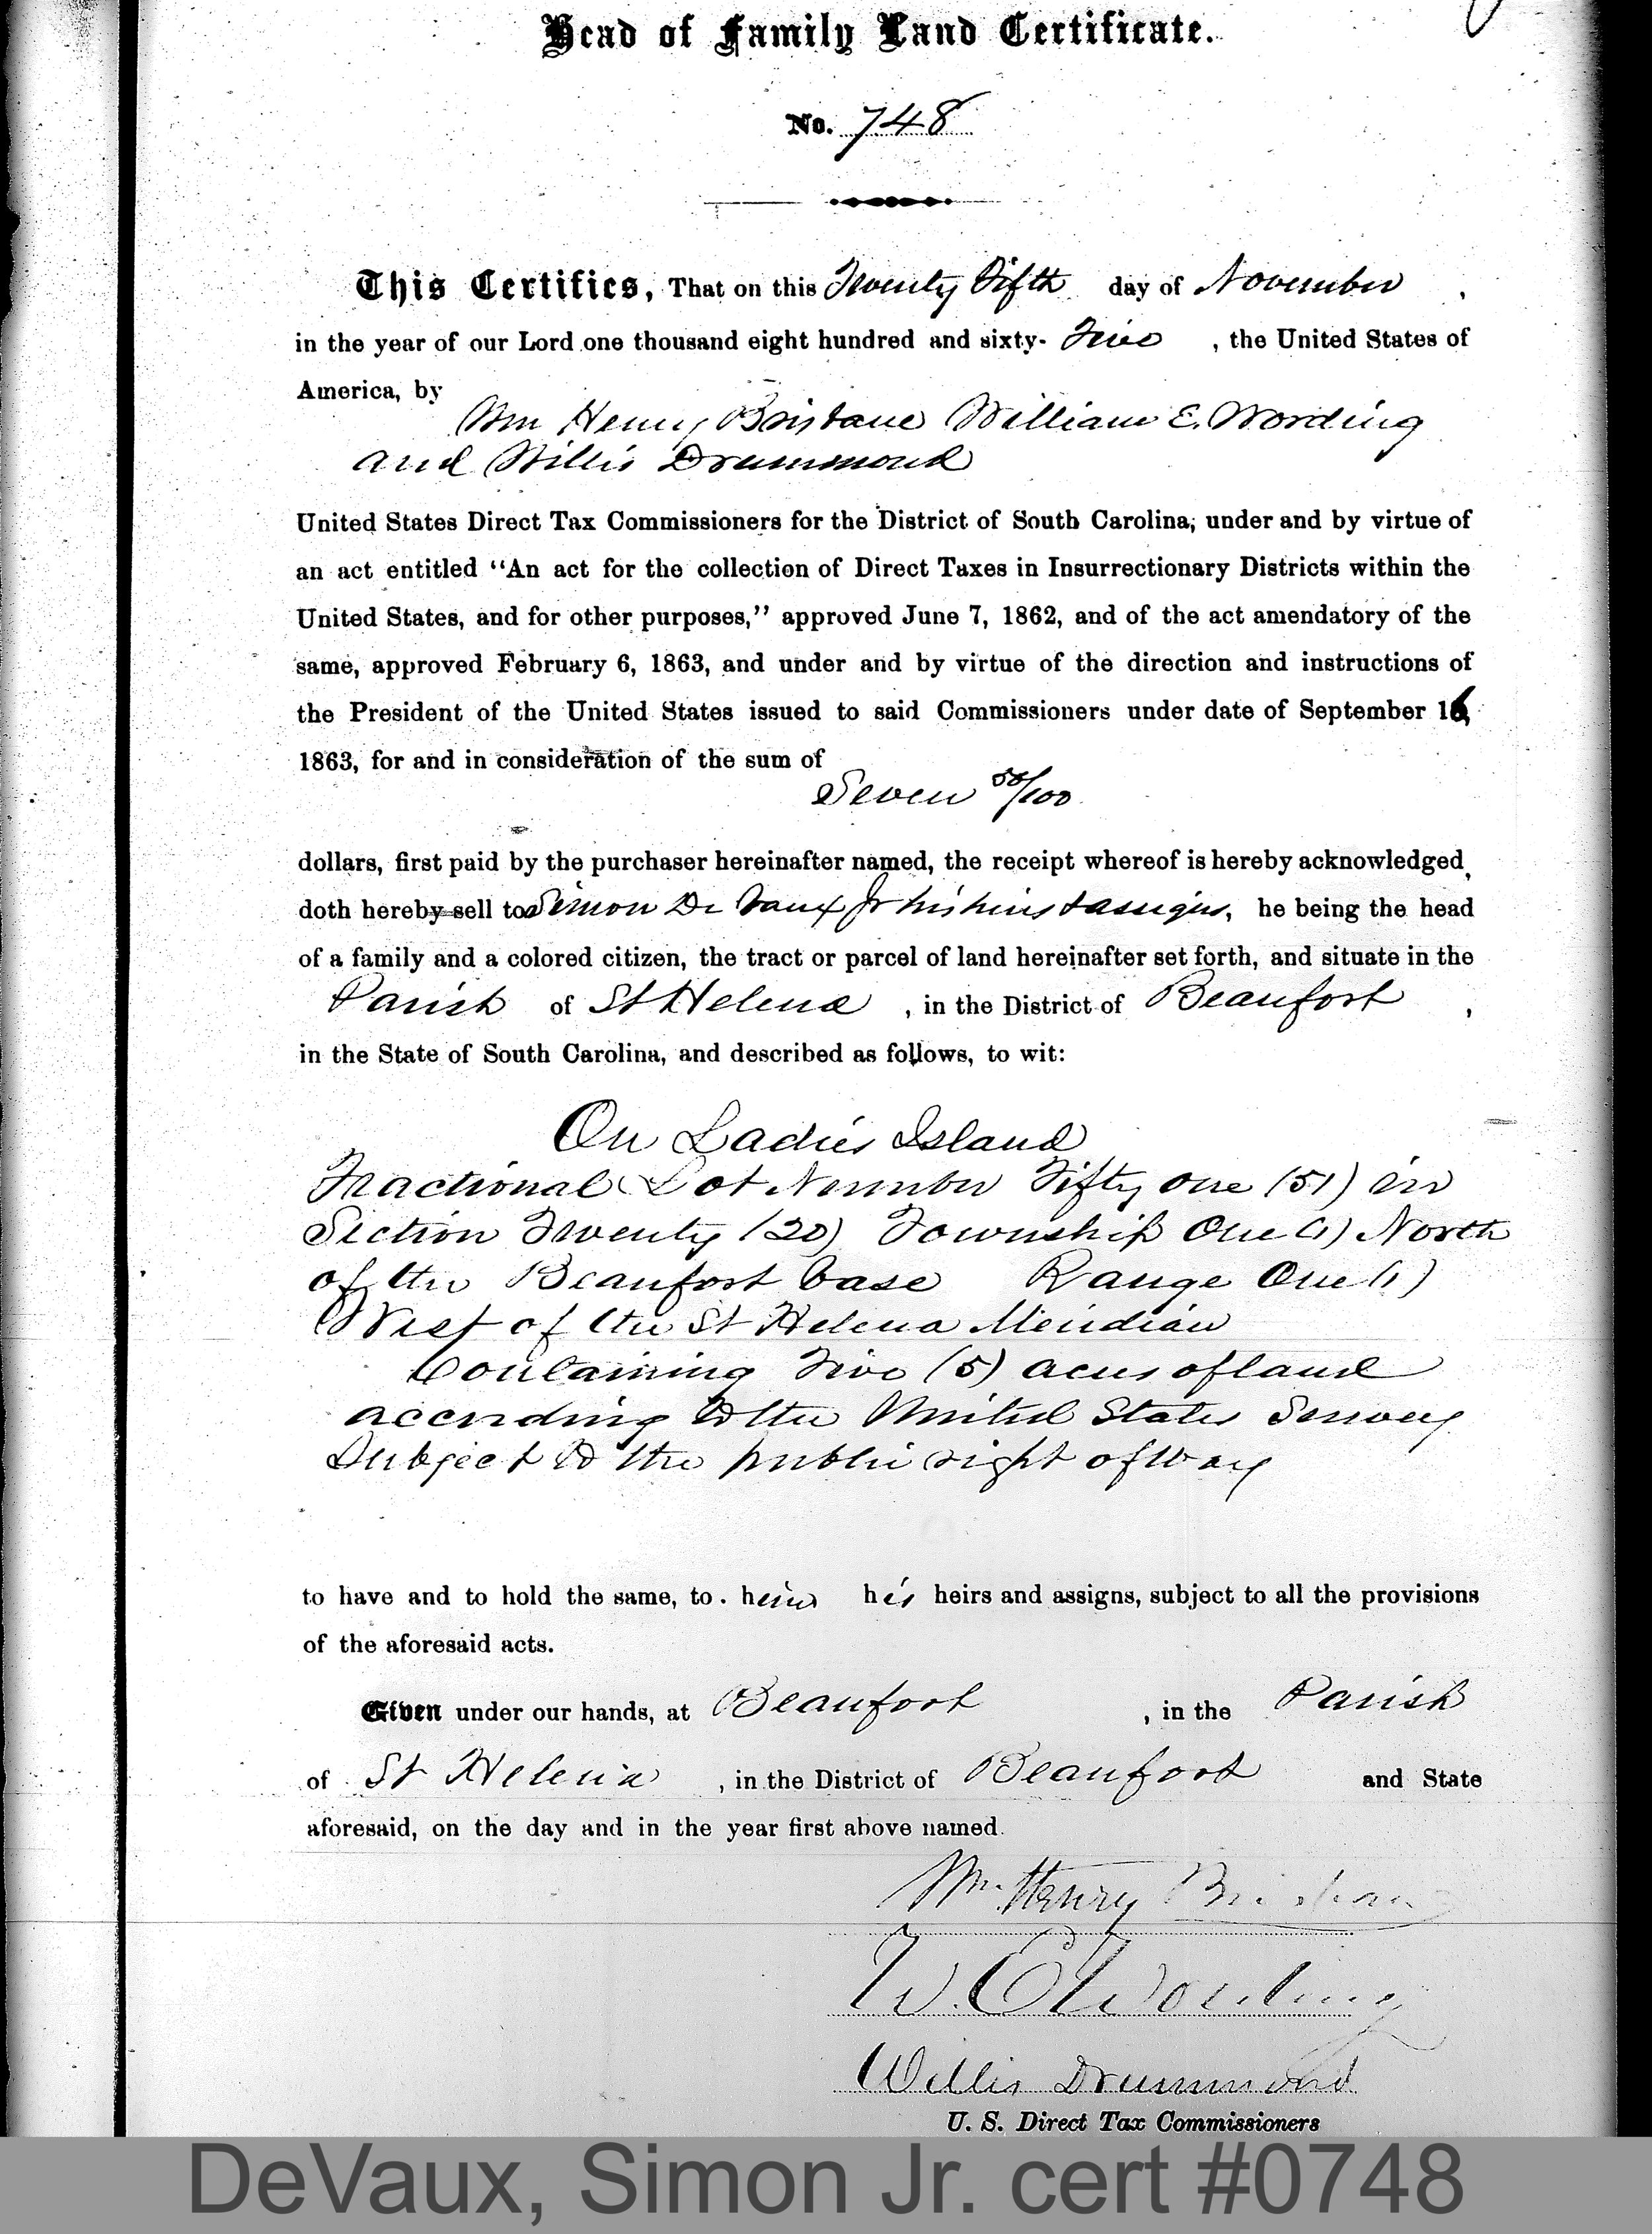 Head of Family Land Certificate.
No. 748
This Certifies, That on this Twenty Fifth day of November ,
in the year of our Lord one thousand eight hundred and sixty- Five , the United States of
America, by
Wm Henry Brisbane William E. Wording
and Willis Drummond
United States Direct Tax Commissioners for the District of South Carolina, under and by virtue of
an act entitled "An act for the collection of Direct Taxes in Insurrectionary Districts within the
United States, and for other purposes," approved June 7, 1862, and of the act amendatory of the
same, approved February 6, 1863, and under and by virtue of the direction and instructions of
the President of the United States issued to said Commissioners under date of September 16,
1863, for and in consideration of the sum of
Seven 50/100
dollars, first paid by the purchaser hereinafter named, the receipt whereof is hereby acknowledged,
doth hereby sell to Simon De Vaux Jr his heirs & assigns, he being the head
of a family and a colored citizen, the tract or parcel of land hereinafter set forth, and situate in the
Parish of St Helena , in the District of Beaufort ,
in the State of South Carolina, and described as follows, to wit:
On Ladies Island
Fractional Lot Number Fifty one (51) in
Section Twenty (20) Township One (1) North
of the Beaufort base Range One (1)
West of the St Helena Meridian
Containing Five (5) acres of land
according to the United States Survey
Subject to the public right of way
to have and to hold the same, to him his heirs and assigns, subject to all the provisions
of the aforesaid acts.
Given under our hands, at Beaufort , in the Parish
of St Helena , in the District of Beaufort and State
aforesaid, on the day and in the year first above named.
Wm. Henry Brisbane
W. E. Wording
Willis Drummond
U. S. Direct Tax Commissioners
DeVaux, Simon Jr. cert #0748